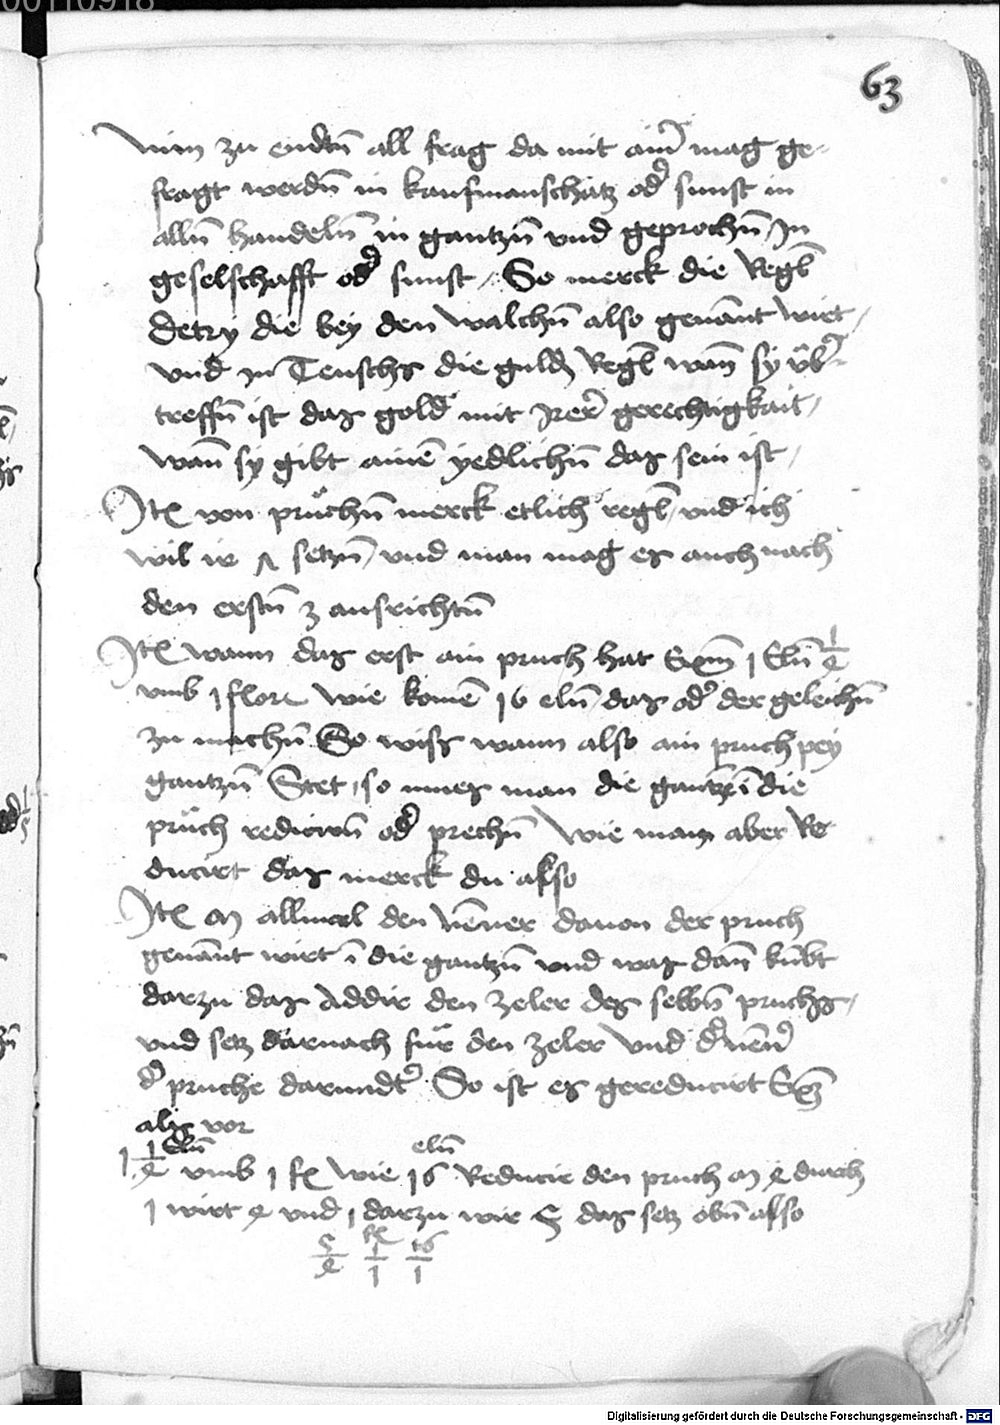 00110918
63
Nun zu endtn̄ all frag da mit aim̄ mag ge-
fragt werdn̄ in kaufmanschatz od̓ sunst in
alln̄ handeln̄ in gantzn̄ und geprochn̄ / In
geselschafft od̓ sunst / So merck die Regl̄
Detry die bey den walchn̄ also genānt wirt /
und zu Teuschs die guld̄ Regl̄ wan̄ sy üb̓-
treffn̄ ist das gold mit irer̄ gerechtigkait /
wan̄ sy gibt ainē yedlichn̄ das sein ist /
Itē von prüchn̄ merck etlich regl̄ / und ich
wil ir setzn̄ / und man mag es auch nach
den erstn̄ 3 ausrichtn̄
Itē wann das erst ain pruch hat 1 Eln̄ 1/2
umb 1 flore wie komē 16 eln̄ / das od̓ der geleichn̄
zu machn̄ So wiss wann also ain pruch pey
gantzn̄ Stet / so mues man die gantzē ī die
prüch redicirn̄ od̓ prechn̄ Wie man aber Re
ducirt das merck du also
Itē m allmal den Nēner dauon der pruch
genānt wirt ī die gantzn̄ und was dan̄ kūbt
darzu das Addir den zeler des selbn̄ pruchs /
und setz darnach für den zeler Und d̓ nēn̓
d̓ pruche darundt̓ So ist es gereducirt
als vor
1 1/2 Eln̄ umb 1 fl wie 16 eln̄ Reducir den pruch m 2 durch
1 wirt 2 und 1 darzu wir 3 das setz obn̄ also
3/2 fl 1/1 16/1
Digitalisierung gefördert durch die Deutsche Forschungsgemeinschaft - DFG